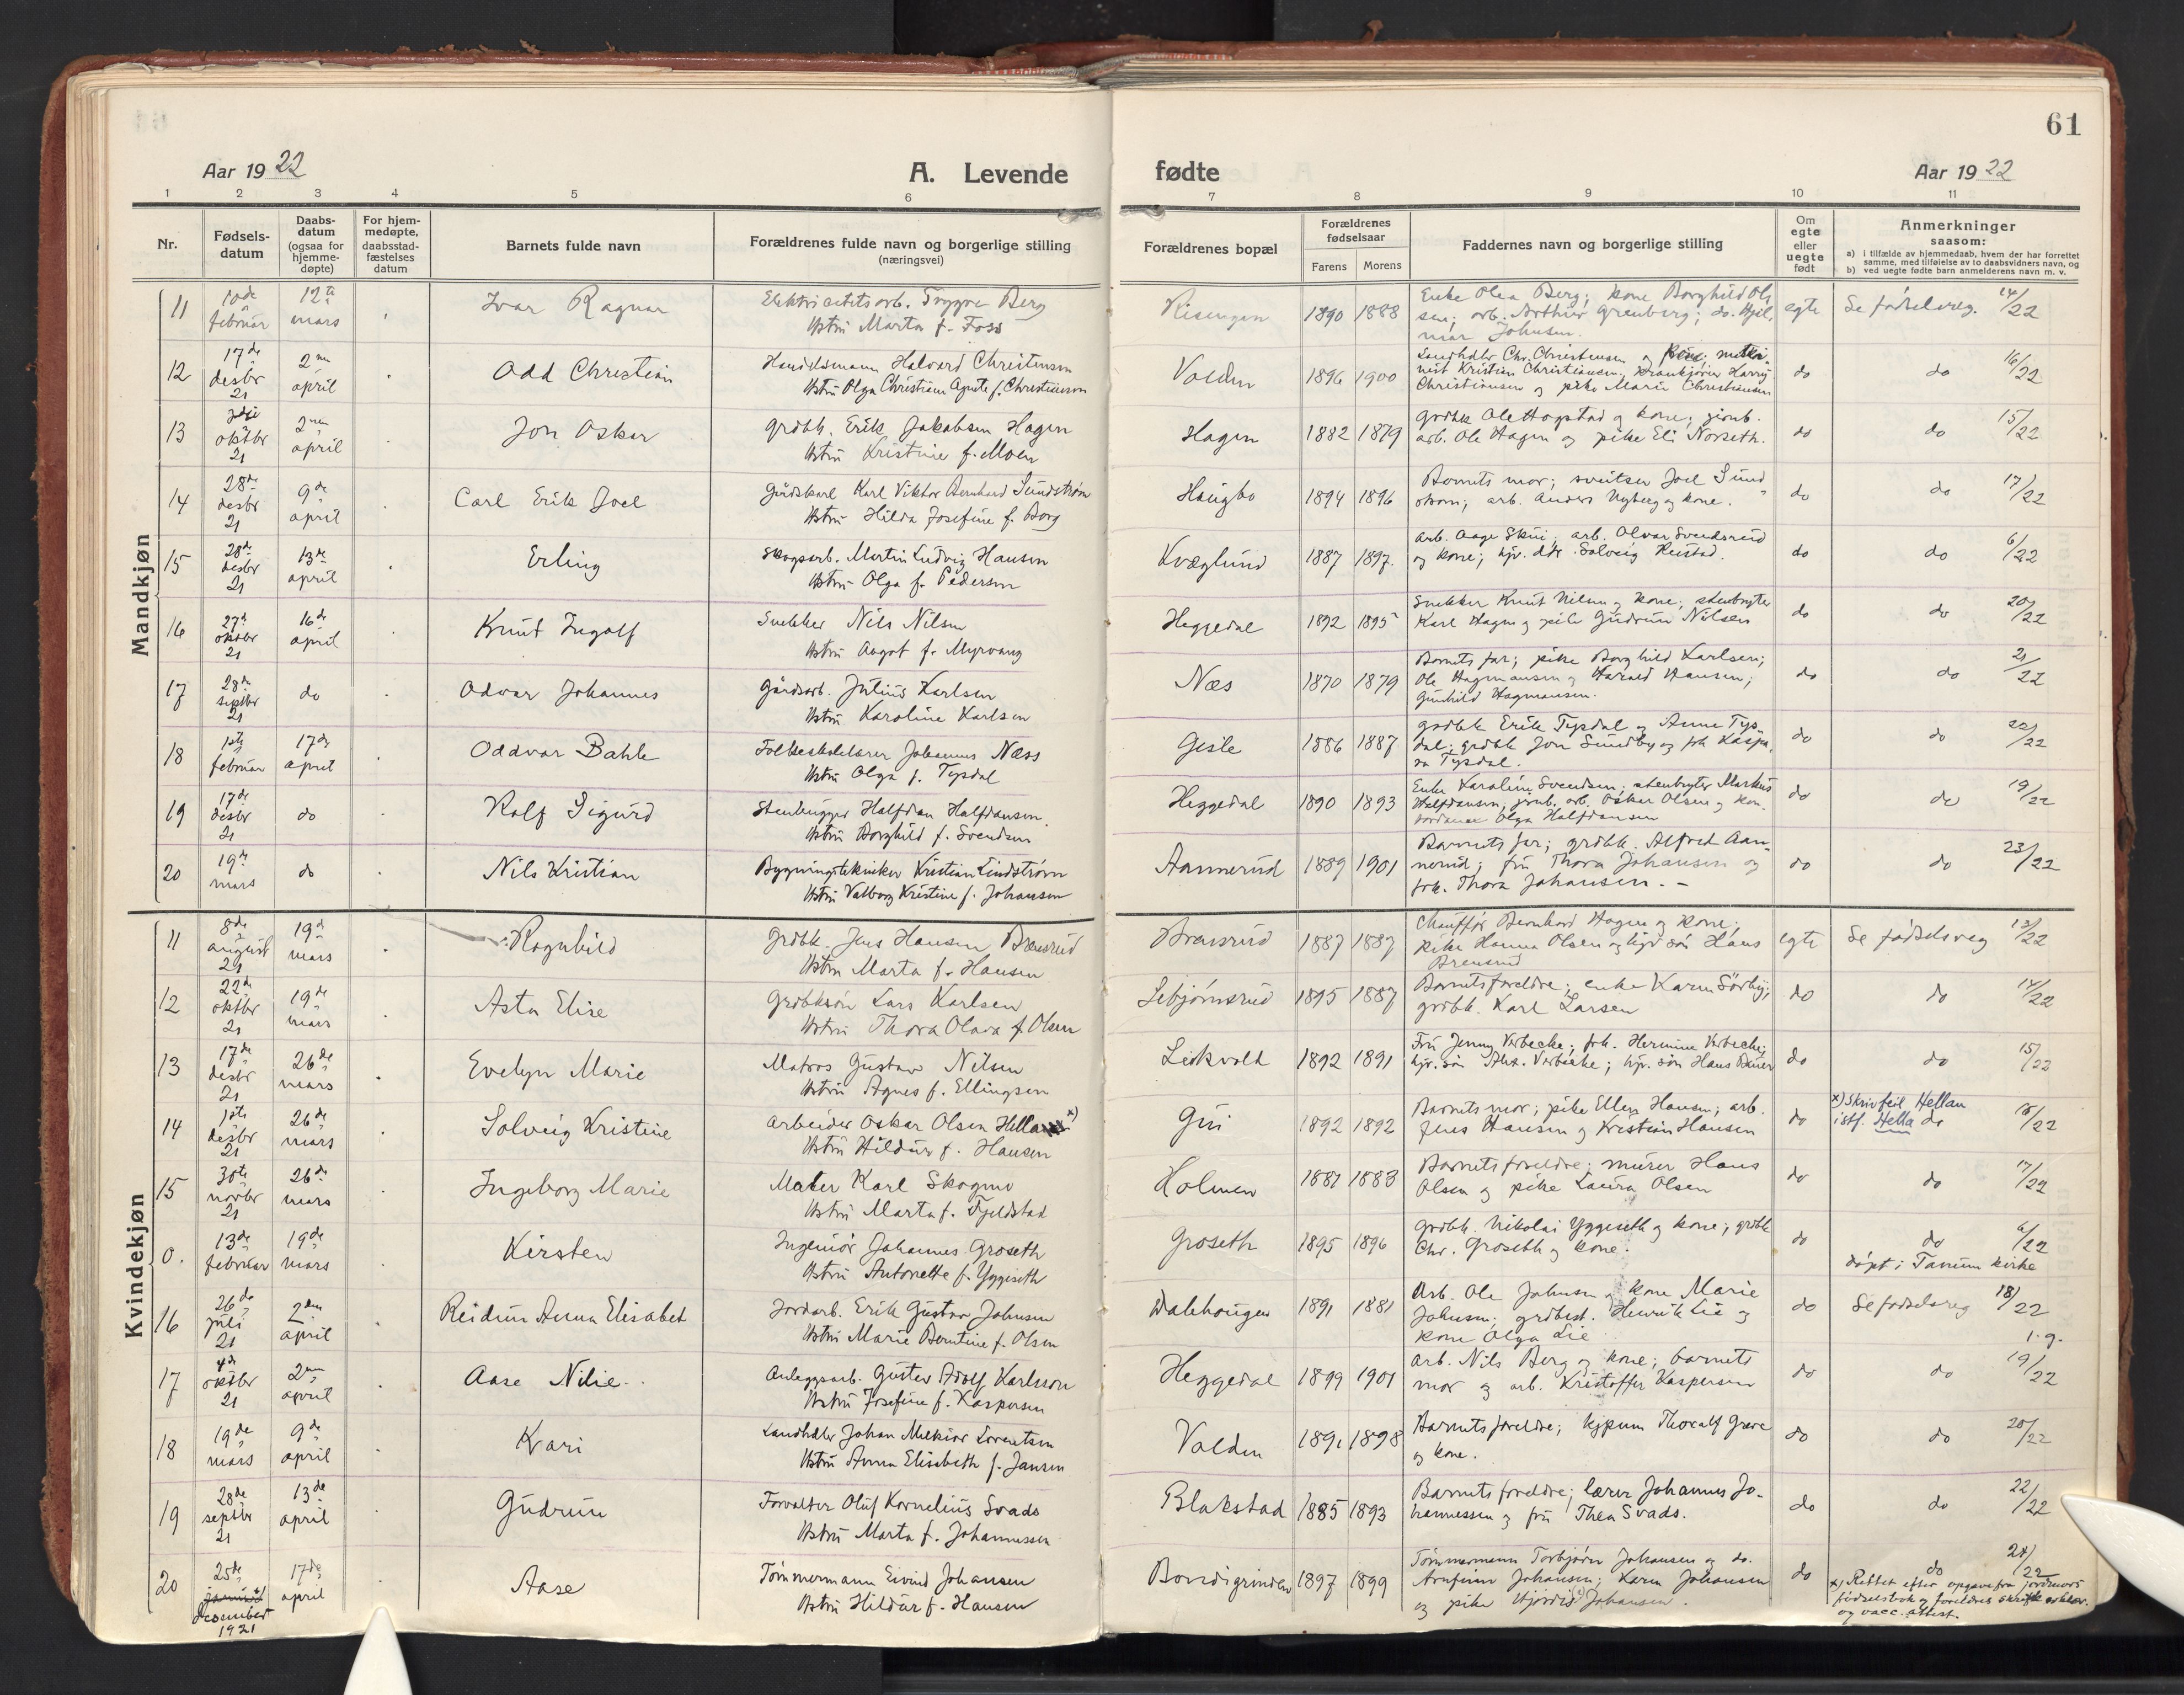 61
Aar 19 22
A. Levende
fødte
Aar 19 22
1 2 3 4 5 6 7 8 9 10 11
Nr.
Fødsels-
datum
Daabs-
datum
(ogsaa for
hjemme-
døpte)
For hjem-
medøpte,
daabsstad-
fæstelses
datum
Barnets fulde navn
Forældrenes fulde navn og borgerlige stilling
(næringsvei)
Forældrenes bopæl
Forældrenes
fødselsaar
Farens Morens
Faddernes navn og borgerlige stilling
Om
egte
eller
uegte
født
Anmerkninger
saasom:
a) i tilfælde av hjemmedaab, hvem der har forrettet
samme, med tilføielse av to daabsvidners navn, og
b) ved uegte fødte barn anmelderens navn m. v.
Mandkjøn
11 10de februar 12te mars Ivar Ragnar
Elektricitetsarb. Trygve Berg
Hstru Marta f. Foss
Risengen 1890 1888
Enke Olea Berg; kone Borghild Ol-
sen; arb. Arthur Grenberg; do. Hjal-
mar Johnsen.
egte Se fødselsreg. 14/22
12 17de desbr 21 2nen april Odd Christian
Handelsmann Halvard Christensen
Hstru Olga Christiane Agate f. Christiansen
Volden 1896 1900
Landhdlr Chr. Christensen og kone; maski-
nist Kristian Christiansen, Harry
Christiansen og pike Marie Christiansen
do do 16/22
13 oktbr 21 2nen april Jon Oskar
grdbk. Erik Jakobsen Hagen
Hstru Kristine f. Moen
Hagen 1882 1879
grdbk Ole Hogstad og kone; jernb.
arb. Ole Hagen og pike Eli Norseth.
do do 15/22
14 28de desbr 21 9de april Carl Erik Joel
Gårdskarl Karl Viktor Bernhard Sundstrøm
Hstru Hilda Josefine f. Borg
Haugbo 1894 1896
Barnets mor; sveitser Joel Sund-
strøm; arb. Anders Nyberg og kone.
do do 17/22
15 28de desbr 21 13de april Erling
Skogsarb. Martin Ludvig Hansen
Hstru Olga f. Pedersen
Kvæglund 1887 1897.
arb. Aage Skui; arb. Olvar Svendsrud
og kone; hjv. dtr. Solveig Rustad.
do do 6/22
16 27de oktbr 21 16de april Knut Ingolf
Snekker Nils Nilsen
Hstru Aagot f. Myrvang
Heggedal 1892 1895
Snekker Knut Nilsen og kone; stenbryter
Karl Hagen og pike Gudrun Nilsen
do do 20/22
17 28de septbr 21 do Odvar Johannes
Gårdsarb. Julius Karlsen
Hstru Karoline Karlsen
Næs 1870 1879
Barnets far; pike Borghild Karlsen;
Ole Hagmansen og Harald Hansen;
Gunhild Hagmansen.
do do 21/22
18 1ste februar 17de april Oddvar Bahle
Folkeskolelærer Johannes Næss
Hstru Olga f. Tysdal
Gisle 1886 1887
grdbk Erik Tysdal og Anne Tys-
dal; grdbk Jon Sundby og frk Kaspa-
ra Tysdal.
do do 22/22
19 17de desbr 21 do Rolf Sigurd
Stenhugger Halfdan Halfdansen.
Hstru Borghild f. Svendsen
Heggedal 1890 1893
Enke Karoline Svendsen; stenbryter Markus
Halfdansen; jernb. arb. Oskar Olsen og kon-
Olga Halfdansen
do do 19/22
20 19de mars do Nils Kristian
Bygningstekniker Kristian Lindstrøm
Hstru Valborg Kristine f. Johansen
Aamerud 1889 1901
Barnets far; grdbk. Alfred Aam-
nerud; fru Thora Johansen og
frk. Thora Johansen. –
do do 23/22
Kvindekjøn
11 8de august 21 19de mars Ragnhild
grdbk. Jens Hansen Brensrud
Hstru Marta f. Hansen
Brensrud 1887 1887
Chauffør Bernhard Hagen og kone;
pike Hanna Olsen og hjv søn Hans
Brensrud
egte Se fødselsreg 13/22
12 22de oktbr 21 19de mars Asta Elise
Grdbksøn Lars Karlsen
Hstru Thora Olava f. Olsen
Lebjørnsrud 1895 1887
Barnets foreldre; enke Karen Sörby;
grdbk. Karl Larsen
do do 14/22
13 17de desbr 21 26de mars Evelyn Marie
Matros Gustav Nilsen
Hstru Agnes f. Ellingsen
Leikvold 1892 1891
Fru Jenny Verbecke; frk. Hermine Verbecke;
hjv. søn Alex. Verbecke; hjv. søn Hans
do do 15/22
14 1ste desbr 21 26de mars Solveig Kristine
arbeider Oskar Olsen Hellan x)
Hstru Hildur f. Hansen
Gui 1892 1892
Barnets mor; pike Ellen Hansen; arb.
Jens Hansen og Kristian Hansen
do x) Skrivfeil Hellan
istf. Hella do 16/22
15 30te novbr 21 26de mars Ingeborg Marie
Maler Karl Skogmo
Hstru Marta f. Fjeldstad
Holmen 1887 1883
Barnets foreldre; murer Hans
Olsen og pike Laura Olsen
do do 17/22
0. 13de februar 19de mars Kirsten
Ingeniør Johannes Groseth
Hstru Antonette f. Yggeseth
Groseth 1895 1896
Grdbk. Nikolai Yggeseth og kone; grdbk
Chr. Groseth og kone.
do do 6/22
døpt i Tanum kirke
16 26de juli 21 2den april Reidun Anna Elisabet
Jordarb. Erik Gustav Johnsen
Hstru Marie Berntine f. Olsen
Dalehaugen 1891 1881
Arb. Ole Johnsen og kone Marie
Johnsen; grdbest. Henrik Lie og
kone Olga Lie
do Se fødselsreg 18/22
1.g.
17 4de oktbr 21 2nen april Aase Nilie
Anleggsarb. Gustav Adolf Karlsson
Hstru Josefine f. Kaspersen
Heggedal 1899 1901
arb. Nils Berg og kone; barnets
mor og arb. Kristoffer Kaspersen
do do 19/22
18 19de mars 9de april Kari
Landhdler Johan Melkior Lorentsen
Hstru Anna Elisabeth f. Jansen
Volden 1891 1898
Barnets foreldre; kjpm Thoralf Greve
og kone.
do do 20/22
19 28de septbr 21 13de april Gudrun
Forvalter Oluf Kornelius Svads
Hstru Marta f. Johannessen
Blakstad 1885 1893
Barnets foreldre; lærer Johannes Jo-
hannessen og fru Thea Svads.
do do 22/22
20 25de januar december 1921 17de april Aase
Tømmermann Eivind Johansen
Hstru Hildur f. Hansen
Bondigrinden 1897 1899
Tømmermann Torbjørn Johansen og do.
Arnfinn Johansen; Karen Johansen
og pike Hjørdis Johansen.
do do 24/22
x) Rettet efter opgave fra jordmors
fødselsbok og foreldres skriftl. erklær.
og vacc. attest.